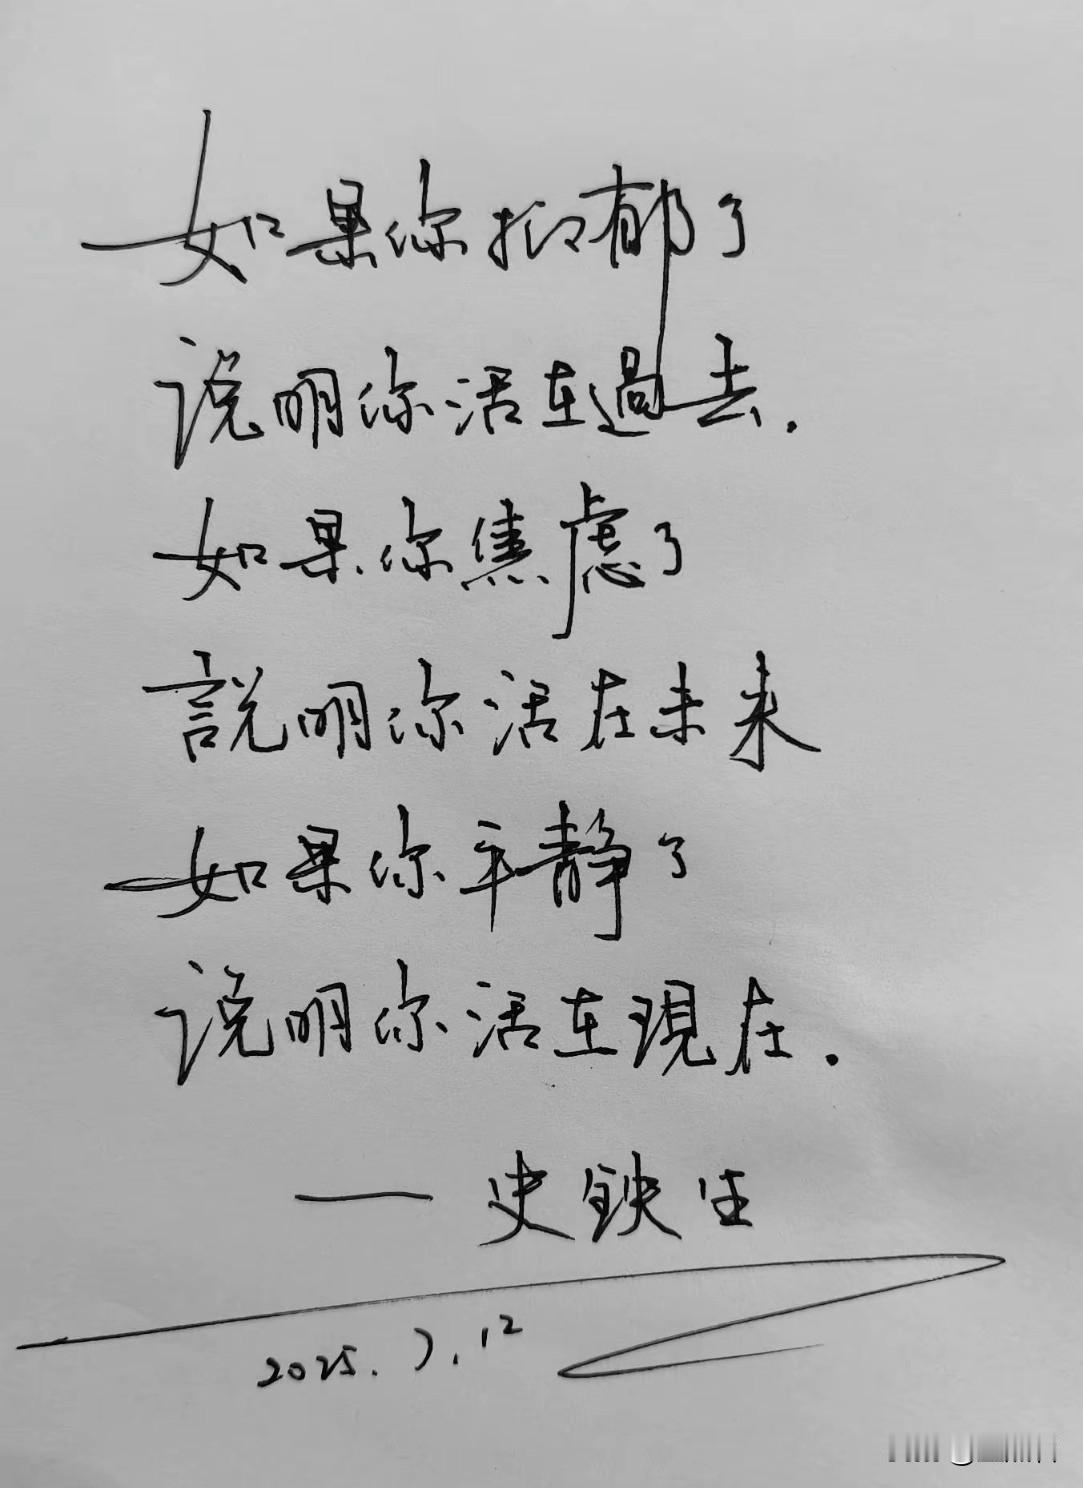 如果你抑郁了
说明你活在過去.
如果你焦虑了
説明你活在未来
如果你平静了
说明你活在現在.
—史鉄生
2025.7.12